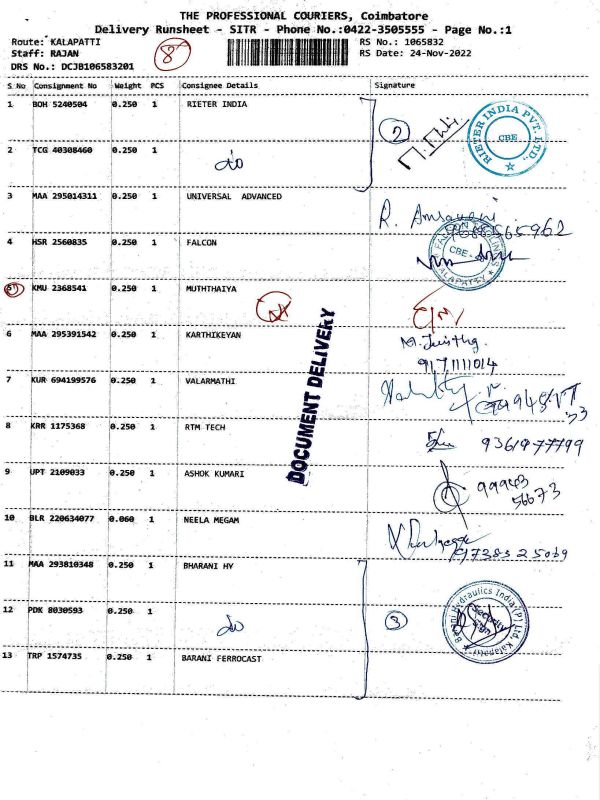 THE PROFESSIONAL COURIERS, Coimbatore
Delivery Runsheet - SITR - Phone No.:0422-3505555 - Page No.:1
Route: KALAPATTI RS No.: 1065832
Staff: RAJAN 8 RS Date: 24-Nov-2022
DRS No.: DCJB106583201
S No Consignment No Weight PCS Consignee Details Signature
1 BOH 5240504 0.250 1 RIETER INDIA
2 RIETER INDIA PVT. LTD., CBE
2 TCG 40308460 0.250 1 do
3 MAA 295014311 0.250 1 UNIVERSAL ADVANCED
4 HSR 2560835 0.250 1 FALCON
CBE
5 KMU 2368541 0.250 1 MUTHTHAIYA
DOCUMENT DELIVERY
6 MAA 295391542 0.250 1 KARTHIKEYAN
9171111014
7 KUR 694199576 0.250 1 VALARMATHI
8 KRR 1175368 0.250 1 RTM TECH
9 UPT 2109033 0.250 1 ASHOK KUMARI
99943
56673
10 BLR 220634077 0.060 1 NEELA MEGAM
11 MAA 293810348 0.250 1 BHARANI HY
12 PDK 8030593 0.250 1 do 3
Hydraulics India (P) Ltd. Kalapatti
Security Sign
13 TRP 1574735 0.250 1 BARANI FERROCAST